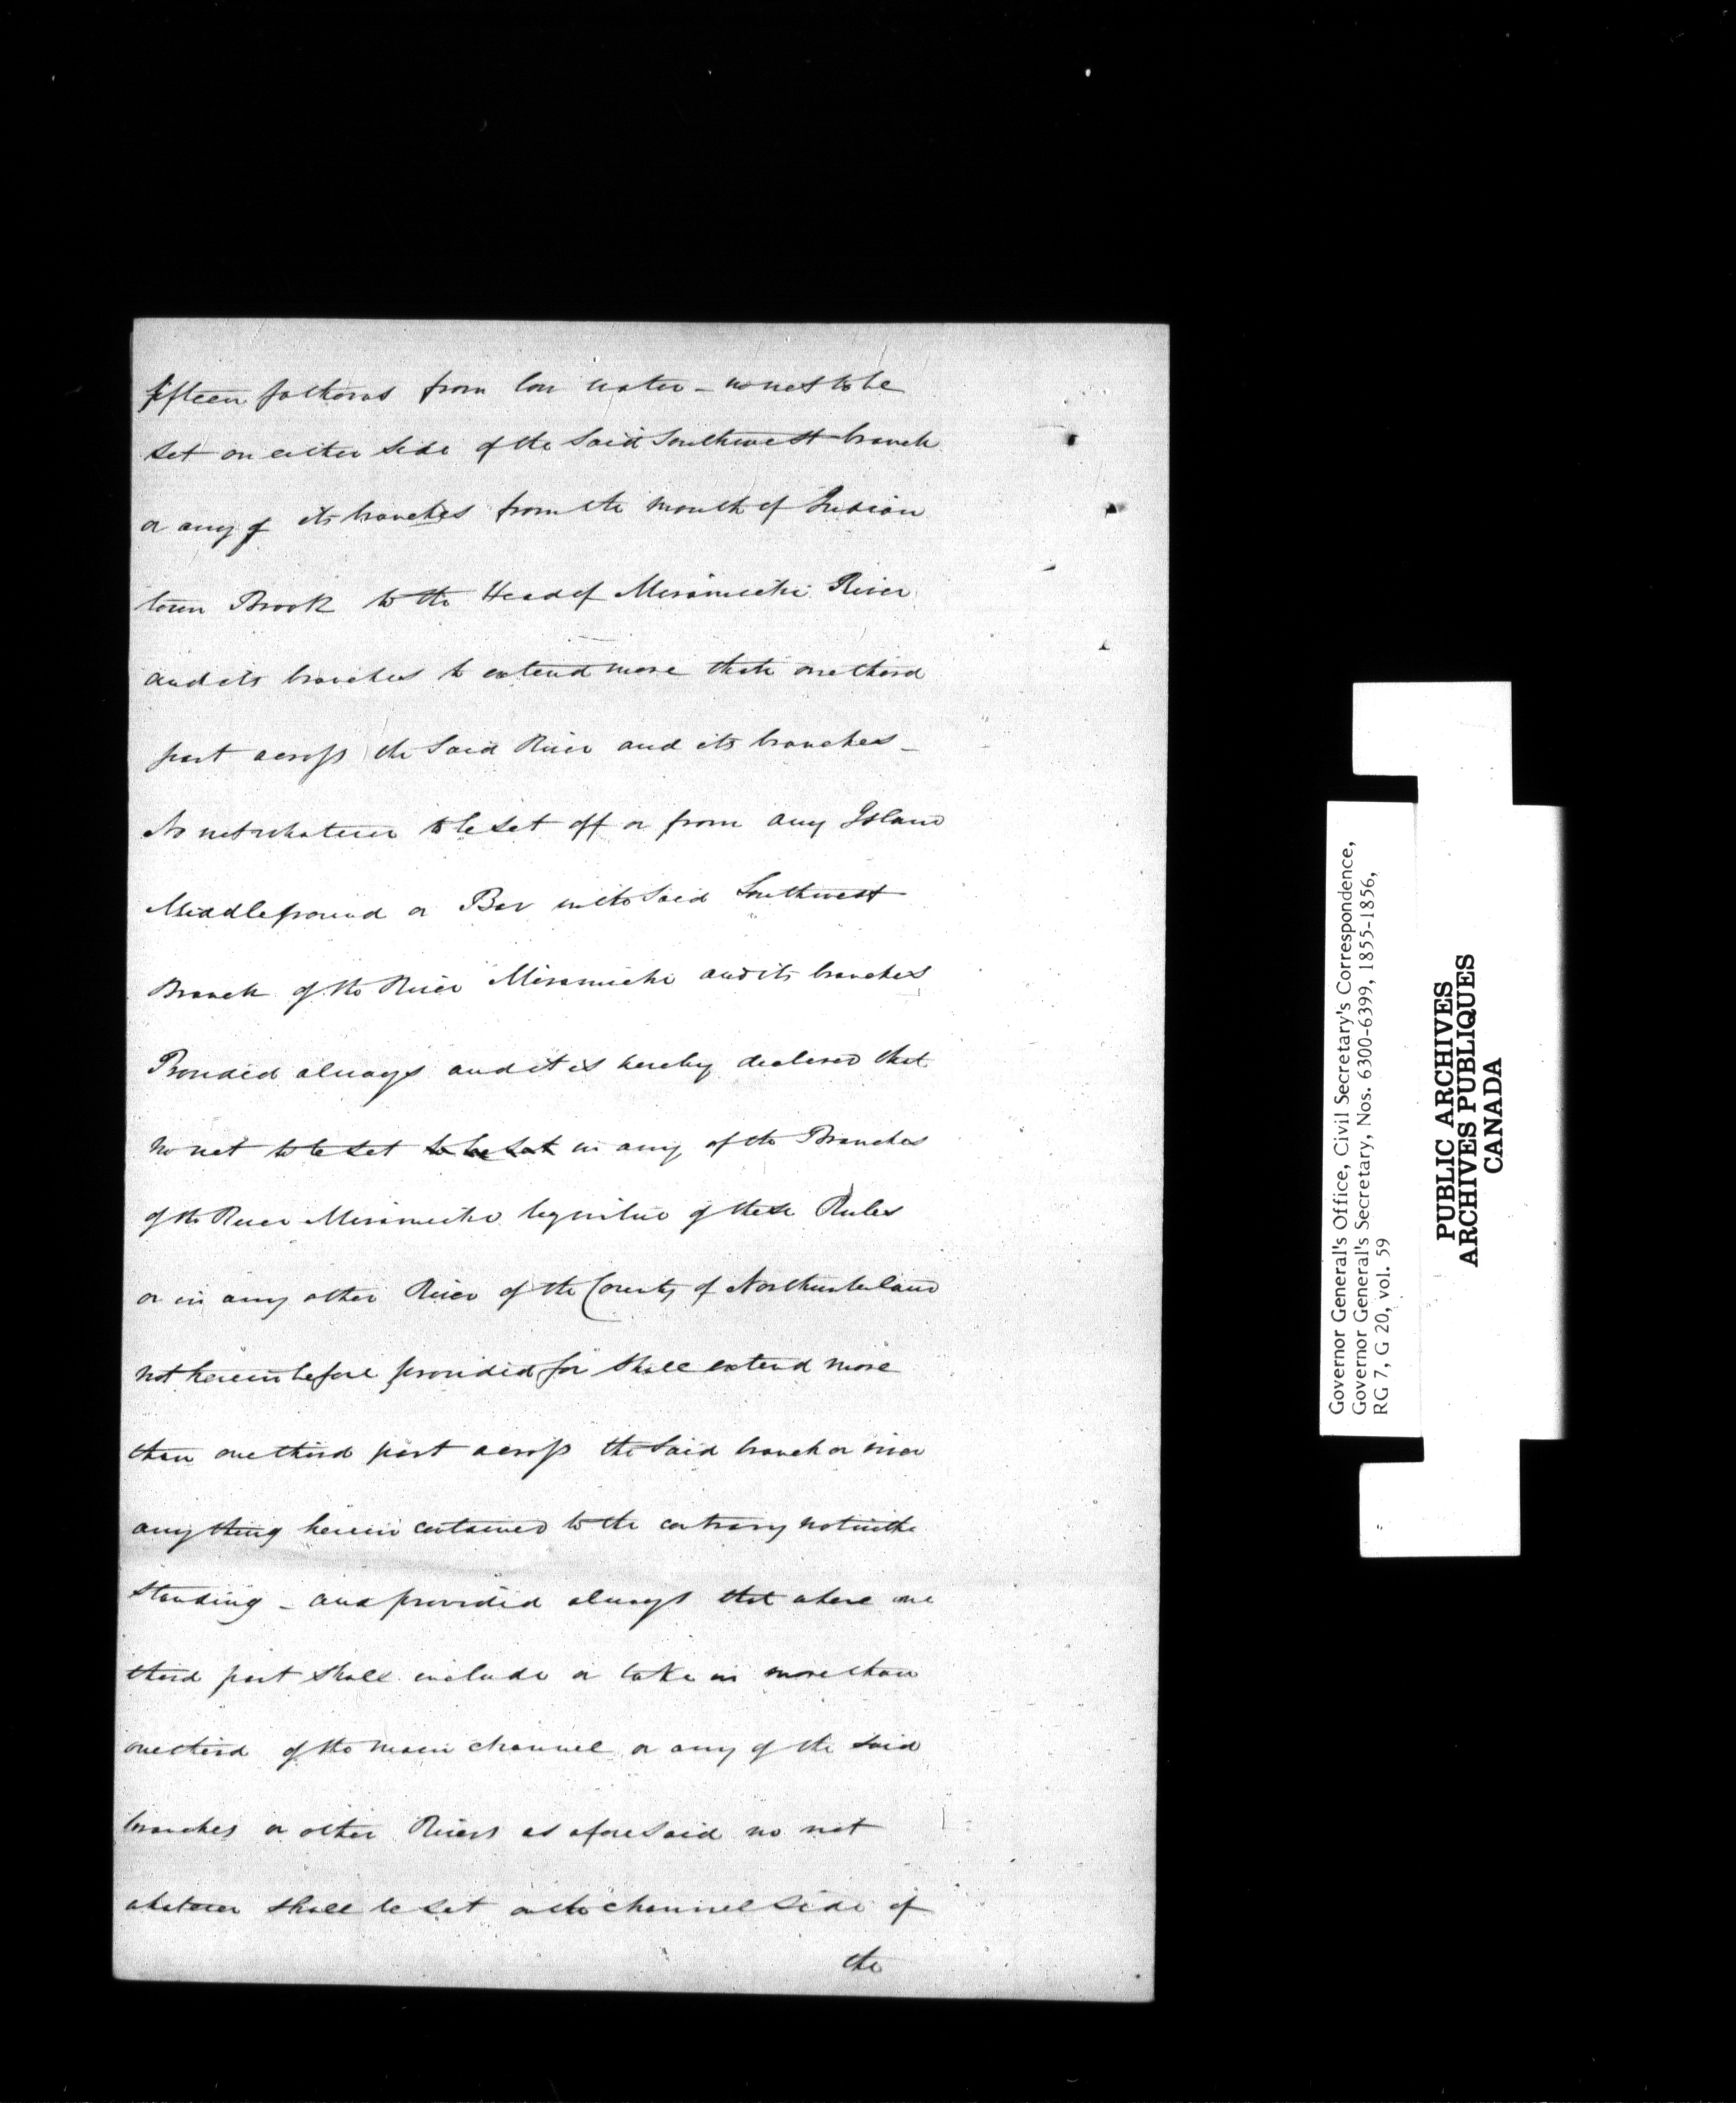 fifteen fathoms from low water - no net to be
set on either side of the said Southwest branch
or any of its branches from the mouth of Indian
town Brook to the Head of Miramichi River
and its branches to extend more than one third
part across the said River and its branches -
No net whatever to be set off or from any Island
Middleground or Bar in the said Southwest
Branch of the River Miramichi and its branches
Provided always and it is hereby declared that
no net to be set to be set in any of the Branches
of the River Miramichi by virtue of these Rules
or in any other River of the County of Northumberland
not herein before provided for shall extend more
than one third part across the said branch or river
any thing herein contained to the contrary notwith
standing - and provided always that where one
third part shall include or take in more than
one third of the main channel or any of the said
branches or other Rivers as aforesaid no net
whatever shall be set on the channel side of
the
Governor General's Office, Civil Secretary's Correspondence,
Governor General's Secretary, Nos. 6300-6399, 1855-1856,
RG 7, G 20, vol. 59
PUBLIC ARCHIVES
ARCHIVES PUBLIQUES
CANADA